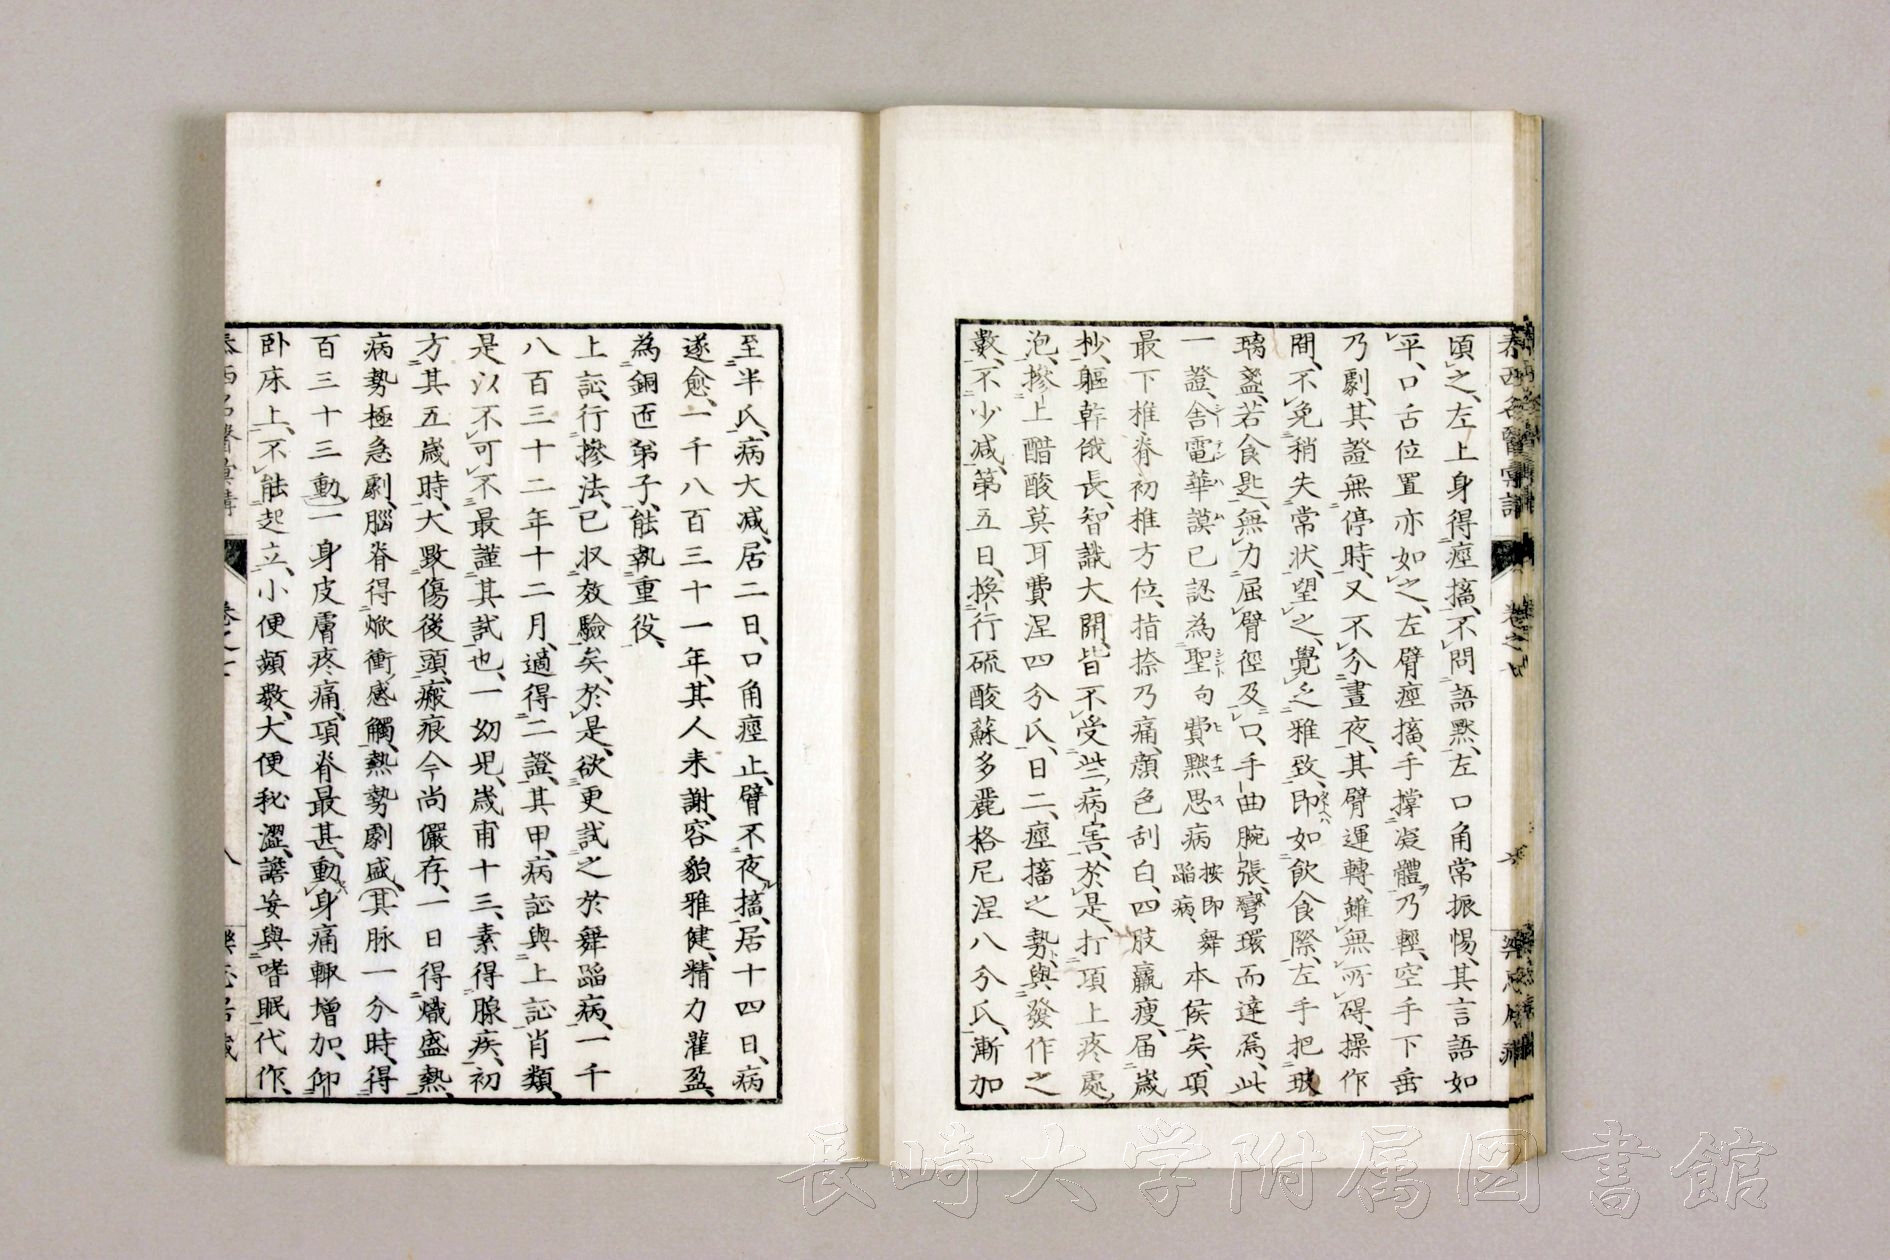 頃之、左上身得痙搐、不問語黙、左口角常振惕、其言語如
平、口舌位置亦如之、左臂痙搐、手撑凝體乃輕、空手下垂
乃劇、其證無停時、又不分晝夜、其臂運轉、雖無所碍、操作
間、不免稍失常状、望之、覺之雅致、即如飲食際、左手把玻
璃盞、若食匙、無力屈臂徑及口、手曲腕張、彎環而達焉、此
一證、舎電華謨已認為聖句費黙思病按即舞蹈病、本侯矣、項
最下椎脊初椎方位、指捺乃痛、顔色刮白、四肢羸痩、届歳
杪、軀幹俄長、智識大開、皆不受些病害、於是、打項上疼處、
泡、摻上醋酸莫耳費涅四分氏、日二、痙搐之勢、與發作之
數、不少减、第五日、換行硫酸蘇多麗格尼涅八分氏、漸加
至半氏、病大减、居二日、口角痙止、臂不夜搐、居十四日、病
遂愈、一千八百三十一年、其人来謝、容貌雅健、精力灌盈、
為銅匠弟子、能執重役、
上証、行摻法、已収效驗矣、於是、欲更試之於舞蹈病、一千
八百三十二年十二月、適得二證、其甲、病証與上証肖類、
是以不可不最謹其試也、一幼児、歳甫十三、素得腺疾、初
方其五歳時、大毀傷後頭、瘢痕今尚儼存、一日得熾盛熱、
病勢極急劇、腦脊得焮衝感觸、熱勢劇盛、其脉一分時、得
百三十三動、一身皮膚疼痛、項脊最甚、動身痛輙増加、仰
卧床上、不能起立、小便頻數、大便秘澀、譫妄與嗜眠代作、
泰西名醫彙講
卷之
八
長崎大学附属図書館